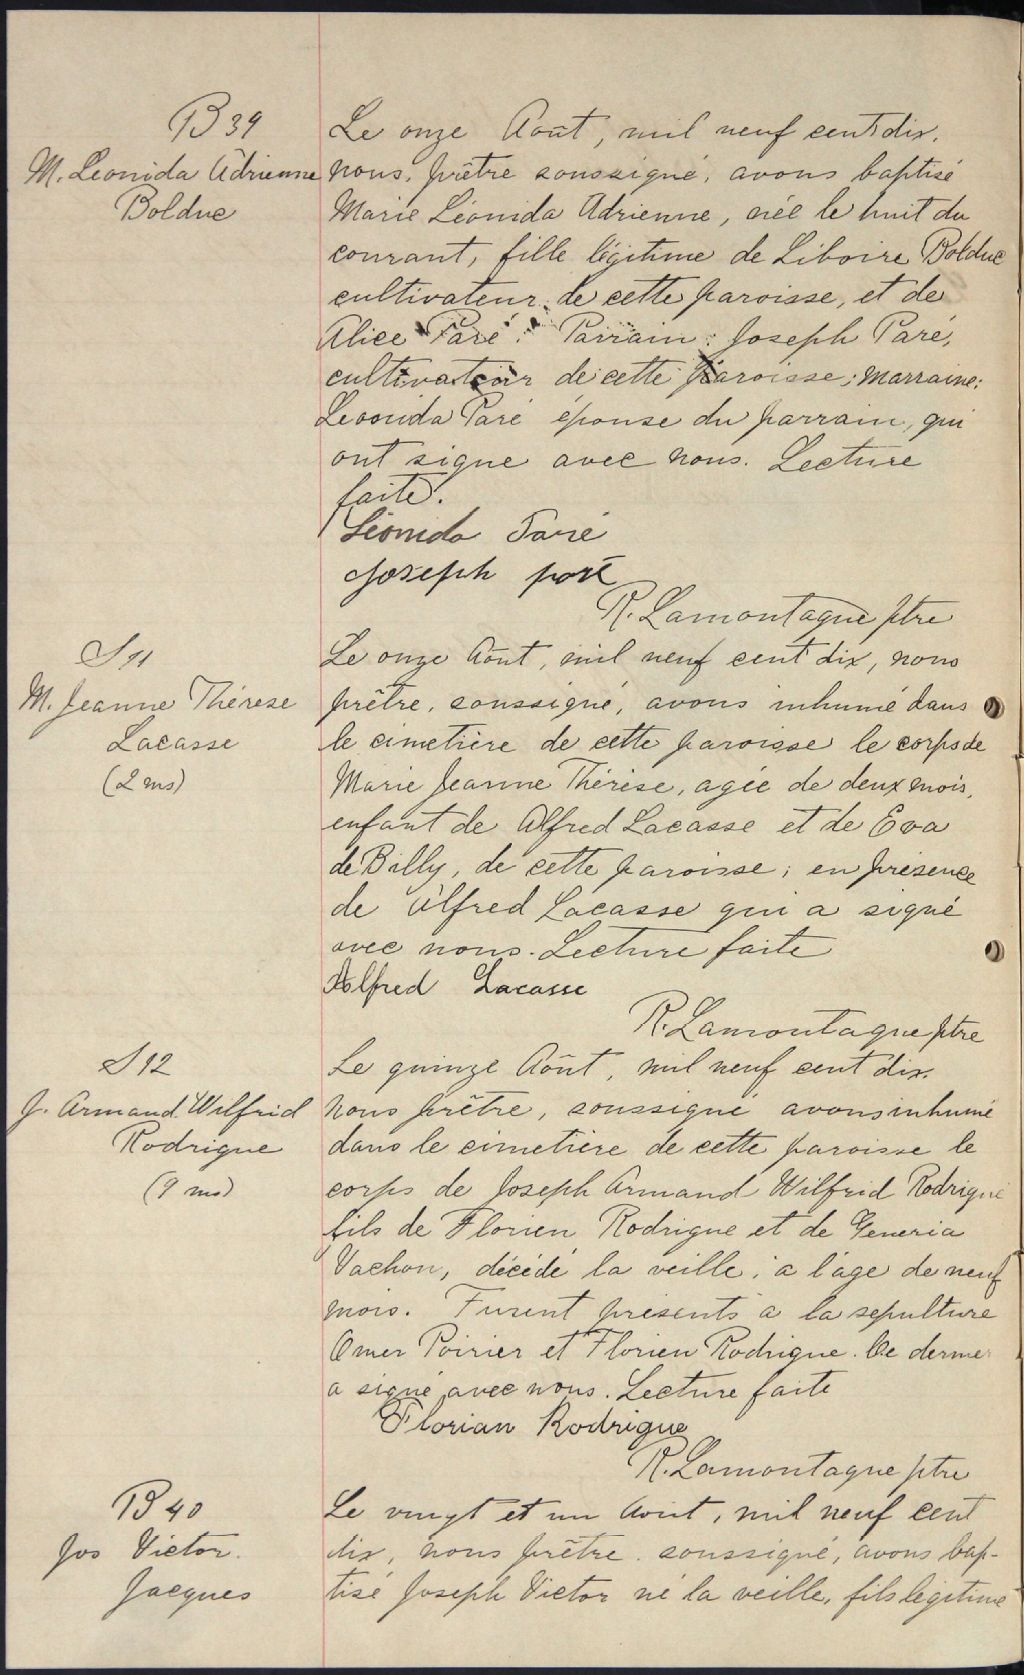 B 39
M. Leonida Adrienne
Bolduc
Le onze Août, mil neuf cent dix,
nous, prêtre soussigné, avons baptisé
Marie Léonida Adrienne, née le huit du
courant, fille légitime de Liboire Bolduc
cultivateur de cette paroisse, et de
Alice Paré. Parrain: Joseph Paré,
cultivateur de cette paroisse; marraine:
Leonida Paré épouse du parrain, qui
ont signe avec nous. Lecture
faite.
Léonida Paré
Joseph paré
R. Lamontagne ptre
S 11
M. Jeanne Thérese
Lacasse
(2 ms)
Le onze Août, mil neuf cent dix, nous
prêtre, soussigné, avons inhumé dans
le cimetière de cette paroisse le corps de
Marie Jeanne Thérèse, agée de deux mois,
enfant de Alfred Lacasse et de Eva
de Billy, de cette paroisse; en présence
de Alfred Lacasse qui a signé
avec nous. Lecture faite
Alfred Lacasse
R. Lamontagne ptre
S 12
J. Armand Wilfrid
Rodrigue
(9 ms)
Le quinze Août, mil neuf cent dix,
nous prêtre, soussigné avons inhumé
dans le cimetière de cette paroisse le
corps de Joseph Armand Wilfrid Rodrigue
fils de Florien Rodrigue et de Generia
Vachon, décédé la veille, a l'age de neuf
mois. Furent présents à la sepulture
Omer Poirier et Florien Rodrigue. Ce dernie
a signé avec nous. Lecture faite
Florian Rodrigue
R. Lamontagne ptre
B 40
Jos Victor.
Jacques
Le vingt et un Aout, mil neuf cent
dix, nous prêtre soussigné, avons bap-
tisé Joseph Victor né la veille, fils legitime